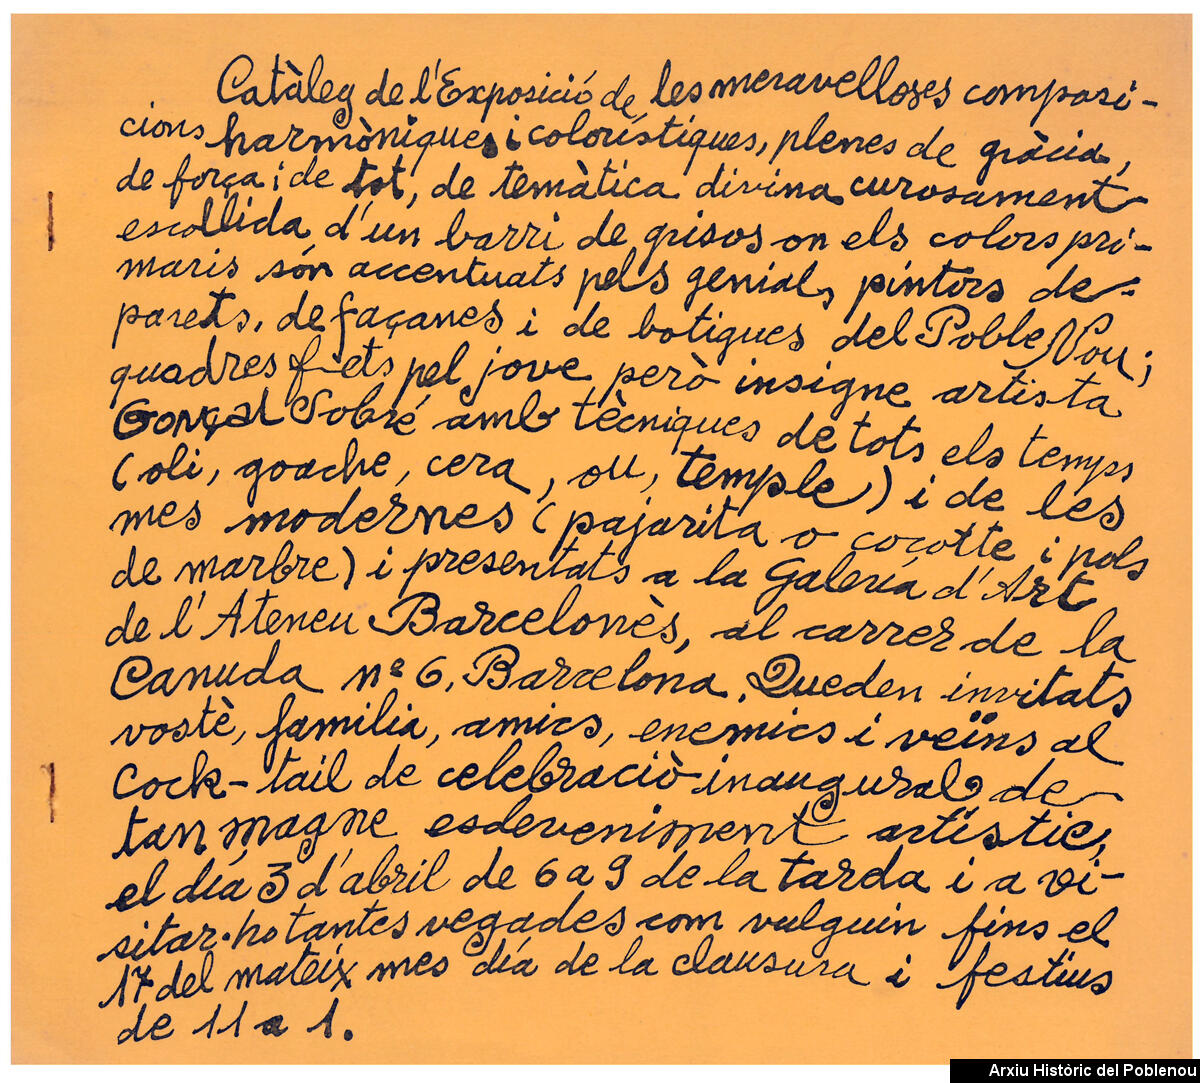 Catàleg de l'Exposició de les meravelloses composi-
cions harmòniques i colorístiques, plenes de gràcia,
de força i de tot, de temàtica divina curosament
escollida d'un barri de grisos on els colors pri-
maris són accentuats pels genials pintors de
parets, de façanes i de botigues del Poble Nou;
quadres fets pel jove però insigne artista
Gonçal Sobré amb tècniques de tots els temps
(oli, goache, cera, ou, temple) i de les
mes modernes (pajarita o cocotte i pols
de marbre) i presentats a la Galería d'Art
de l'Ateneu Barcelonès, al carrer de la
Canuda nº 6, Barcelona. Queden invitats
vostè, familia, amics, enemics i veïns al
Cock-tail de celebració inaugural de
tan magne esdeveniment artístic,
el día 3 d'abril de 6 a 9 de la tarda i a vi-
sitar-ho tantes vegades com vulguin fins el
17 del mateix mes día de la clausura i festius
de 11 a 1.
Arxiu Històric del Poblenou